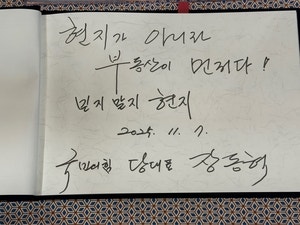 현지가 아니라
부동산이 먼저다!
믿지 말지 현지
2025. 11. 7.
국민의힘 당대표 장동혁